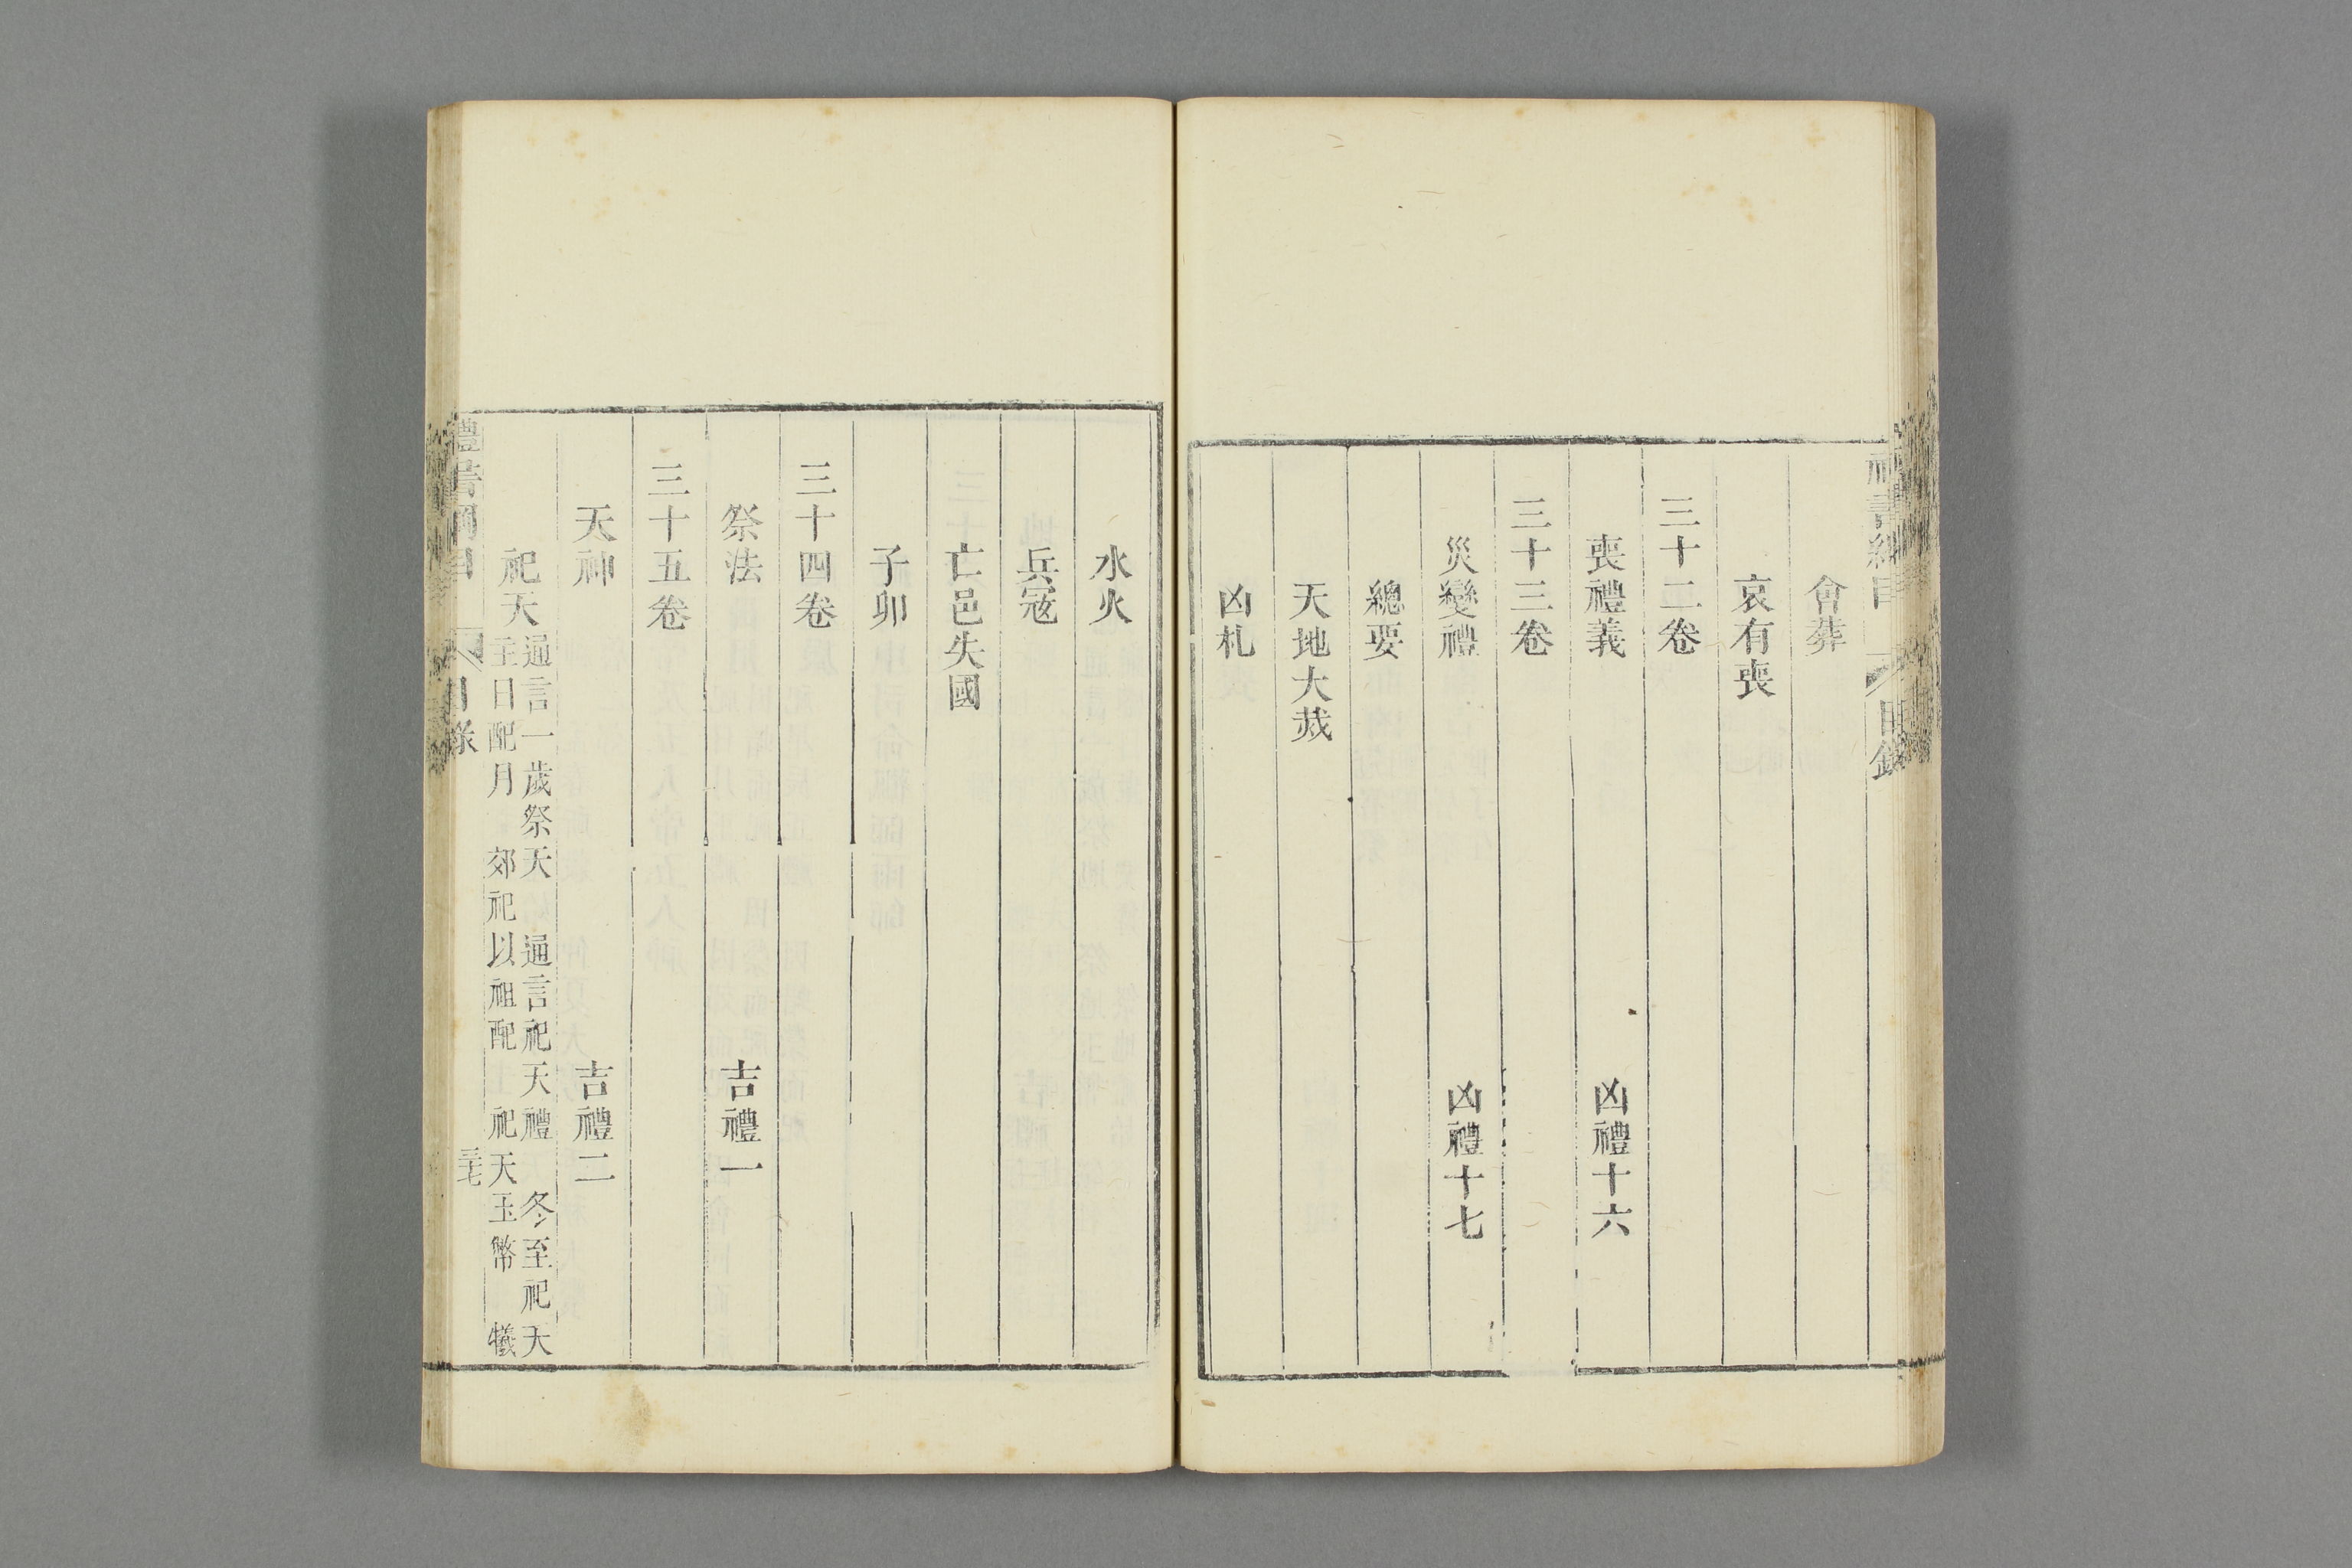 禮書綱目　目錄
會葬
哀有喪
三十二卷
喪禮義　凶禮十六
三十三卷
災變禮　凶禮十七
總要
天地大烖
凶札
水火
兵寇
亡邑失國
子卯
三十四卷
祭法　吉禮一
三十五卷
天神　吉禮二
祀天
通言一歲祭天　通言祀天禮　冬至祀天
主日配月　郊祀以祖配　祀天玉幣　犧
禮書綱目　目錄　三七